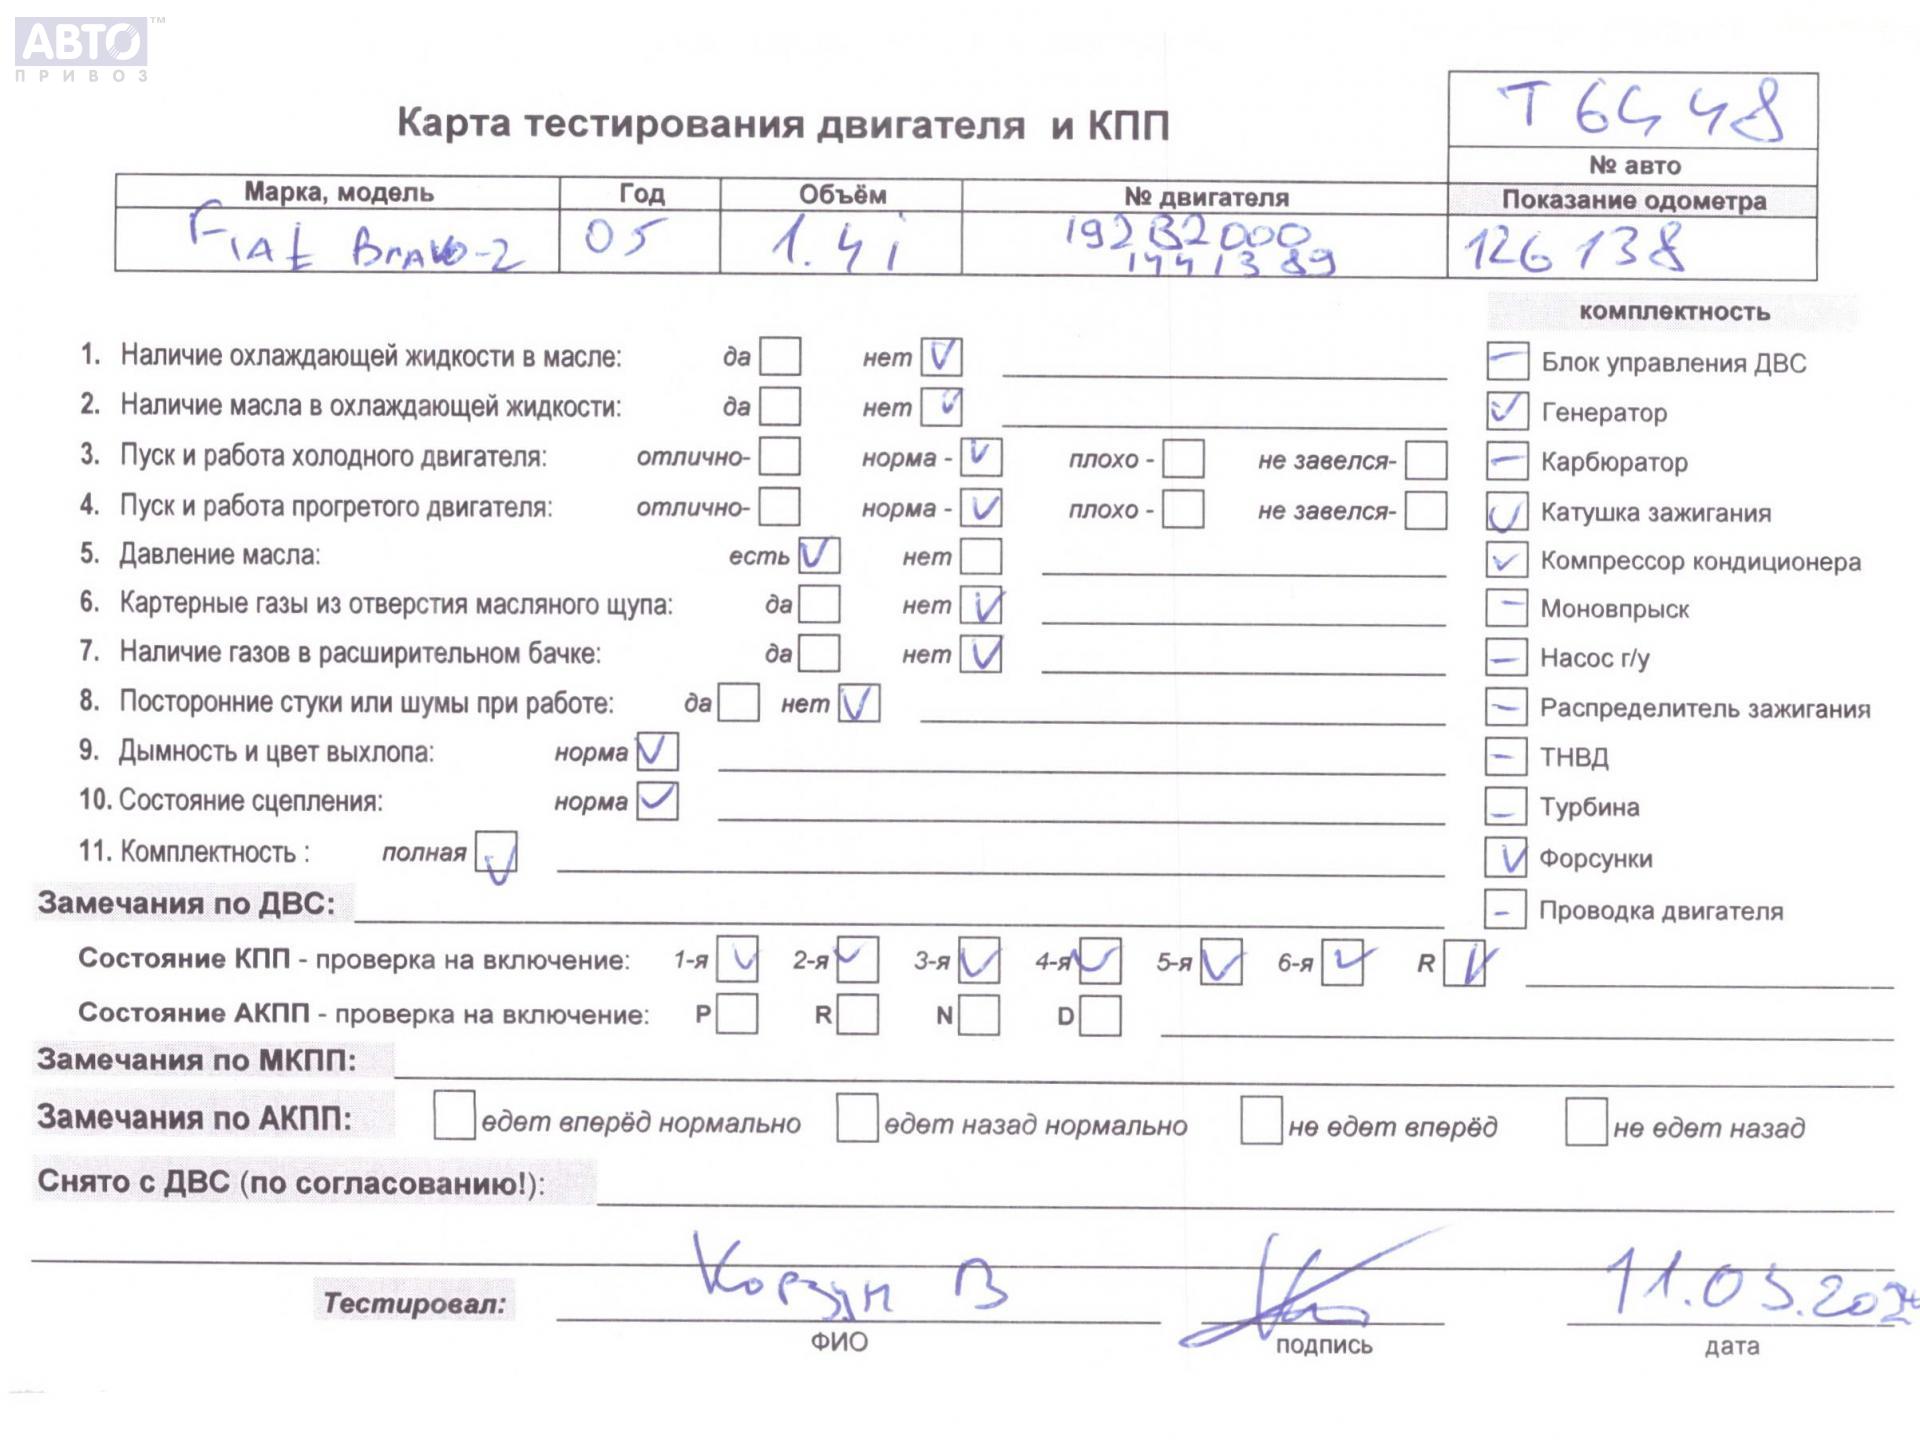 АВТО™
ПРИВОЗ
Т6448
Карта тестирования двигателя и КПП
№ авто
Марка, модель Год Объём № двигателя Показание одометра
Fiat Bravo-2 05 1.4i 192B2000 126138
1441389
комплектность
1. Наличие охлаждающей жидкости в масле: да нет ✓ Блок управления ДВС
2. Наличие масла в охлаждающей жидкости: да нет ✓ ✓ Генератор
3. Пуск и работа холодного двигателя: отлично- норма - ✓ плохо - не завелся- Карбюратор
4. Пуск и работа прогретого двигателя: отлично- норма - ✓ плохо - не завелся- ✓ Катушка зажигания
5. Давление масла: есть ✓ нет ✓ Компрессор кондиционера
6. Картерные газы из отверстия масляного щупа: да нет ✓ – Моновпрыск
7. Наличие газов в расширительном бачке: да нет ✓ – Насос г/у
8. Посторонние стуки или шумы при работе: да нет ✓ – Распределитель зажигания
9. Дымность и цвет выхлопа: норма ✓ – ТНВД
10. Состояние сцепления: норма ✓ – Турбина
11. Комплектность : полная ✓ ✓ Форсунки
Замечания по ДВС: – Проводка двигателя
Состояние КПП - проверка на включение: 1-я ✓ 2-я ✓ 3-я ✓ 4-я ✓ 5-я ✓ 6-я ✓ R ✓
Состояние АКПП - проверка на включение: P R N D
Замечания по МКПП:
Замечания по АКПП: едет вперёд нормально едет назад нормально не едет вперёд не едет назад
Снято с ДВС (по согласованию!):
Тестировал: Корзун В 11.03.2024
ФИО подпись дата